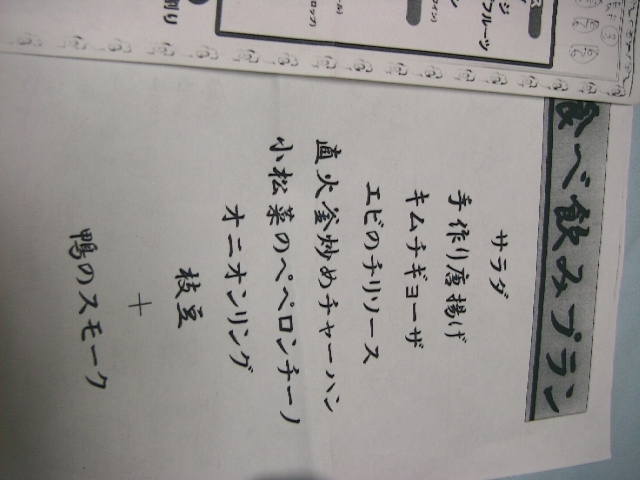 食べ飲みプラン
サラダ
手作り唐揚げ
キムチギョーザ
エビのチリソース
直火釜炒めチャーハン
小松菜のペペロンチーノ
オニオンリング
枝豆
＋
鴨のスモーク
フルーツ
割り